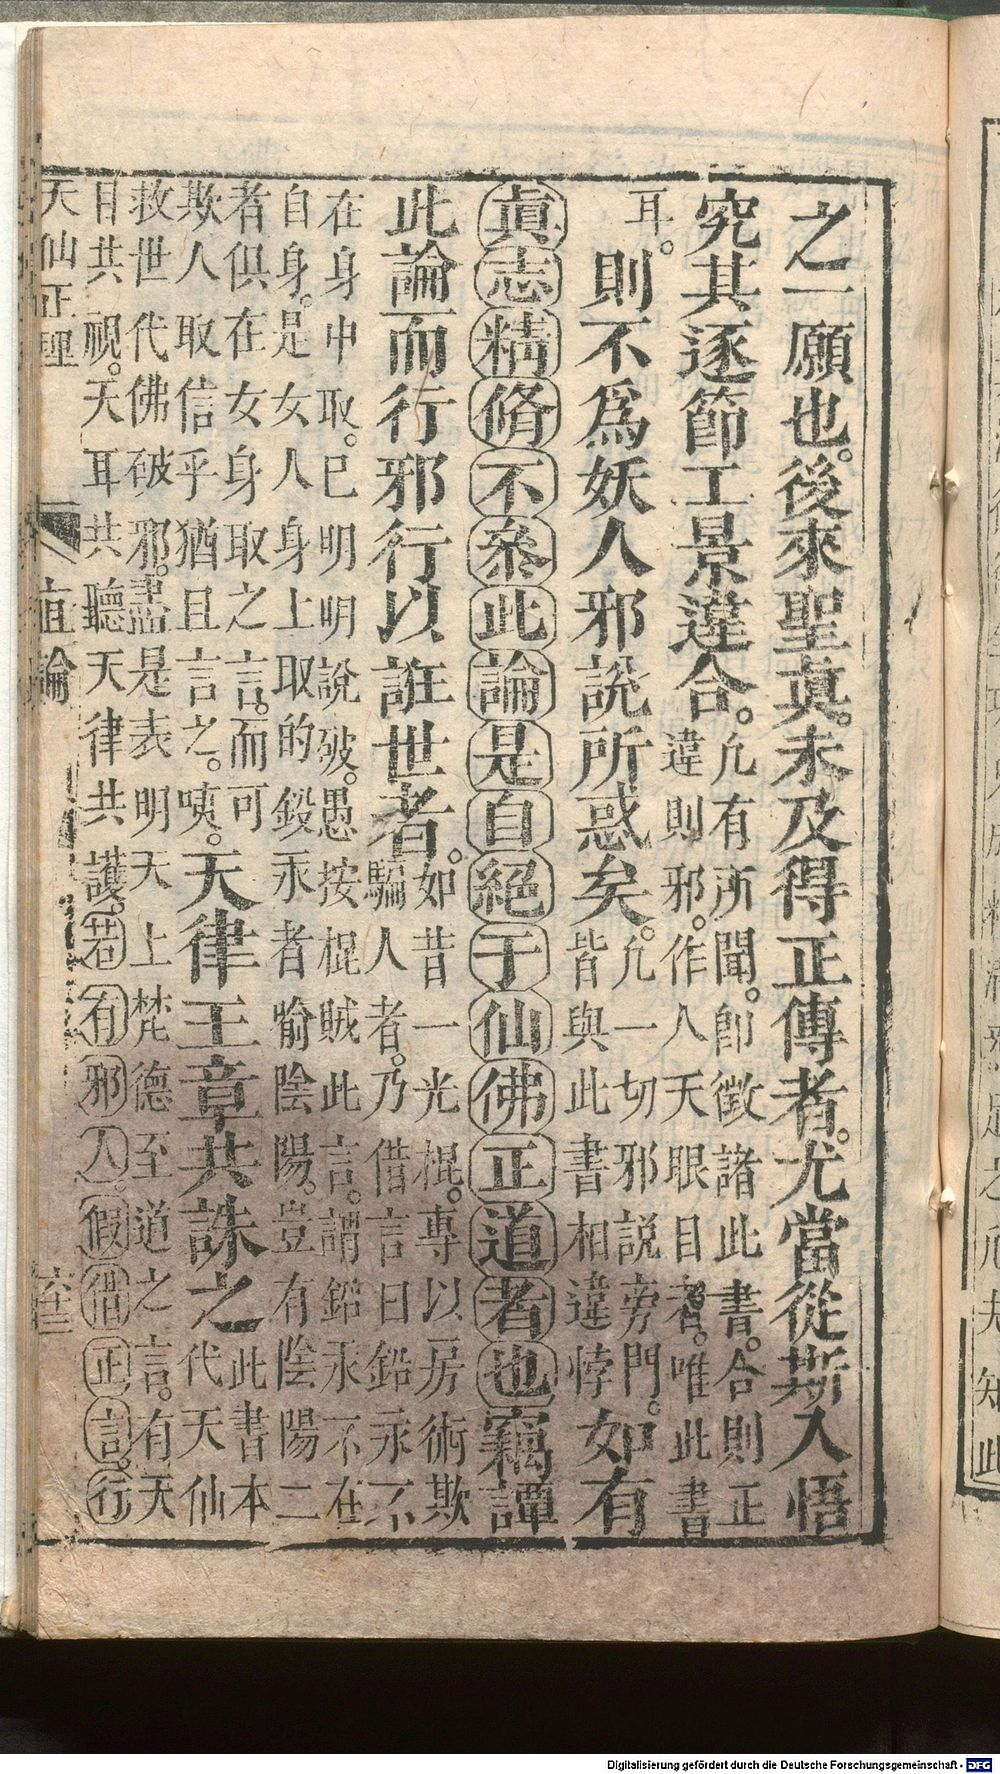 之一願也。後來聖眞。未及得正傳者。尤當從斯入悟
究其逐節工景違合。凡有所聞。卽徵諸此書。合則正
違則邪。作人天眼目者。唯此書
耳。則不爲妖人邪說所惑矣。凡一切邪説旁門。
皆與此書相違悖如有
眞志精脩不叅此論是自絕于仙佛正道者也竊譚
此論而行邪行以誑世者。如昔一光棍。專以房術欺
騙人者。乃借言曰鉛汞不
在身中取。已明明說破。愚按棍賊此言。謂鉛汞不在
自身。是女人身上取的鍛汞者喻陰陽。豈有陰陽二
者俱在女身取之言。而可
欺人取信乎猶且言之。咦。天律王章共誅之此書本
代天仙
救世代佛破邪。盡是表明天上梵德至道之言。有天
目共視。天耳共聽天律共護。若有邪人。假借正言。行
天仙正理 直論
Digitalisierung gefördert durch die Deutsche Forschungsgemeinschaft - DFG